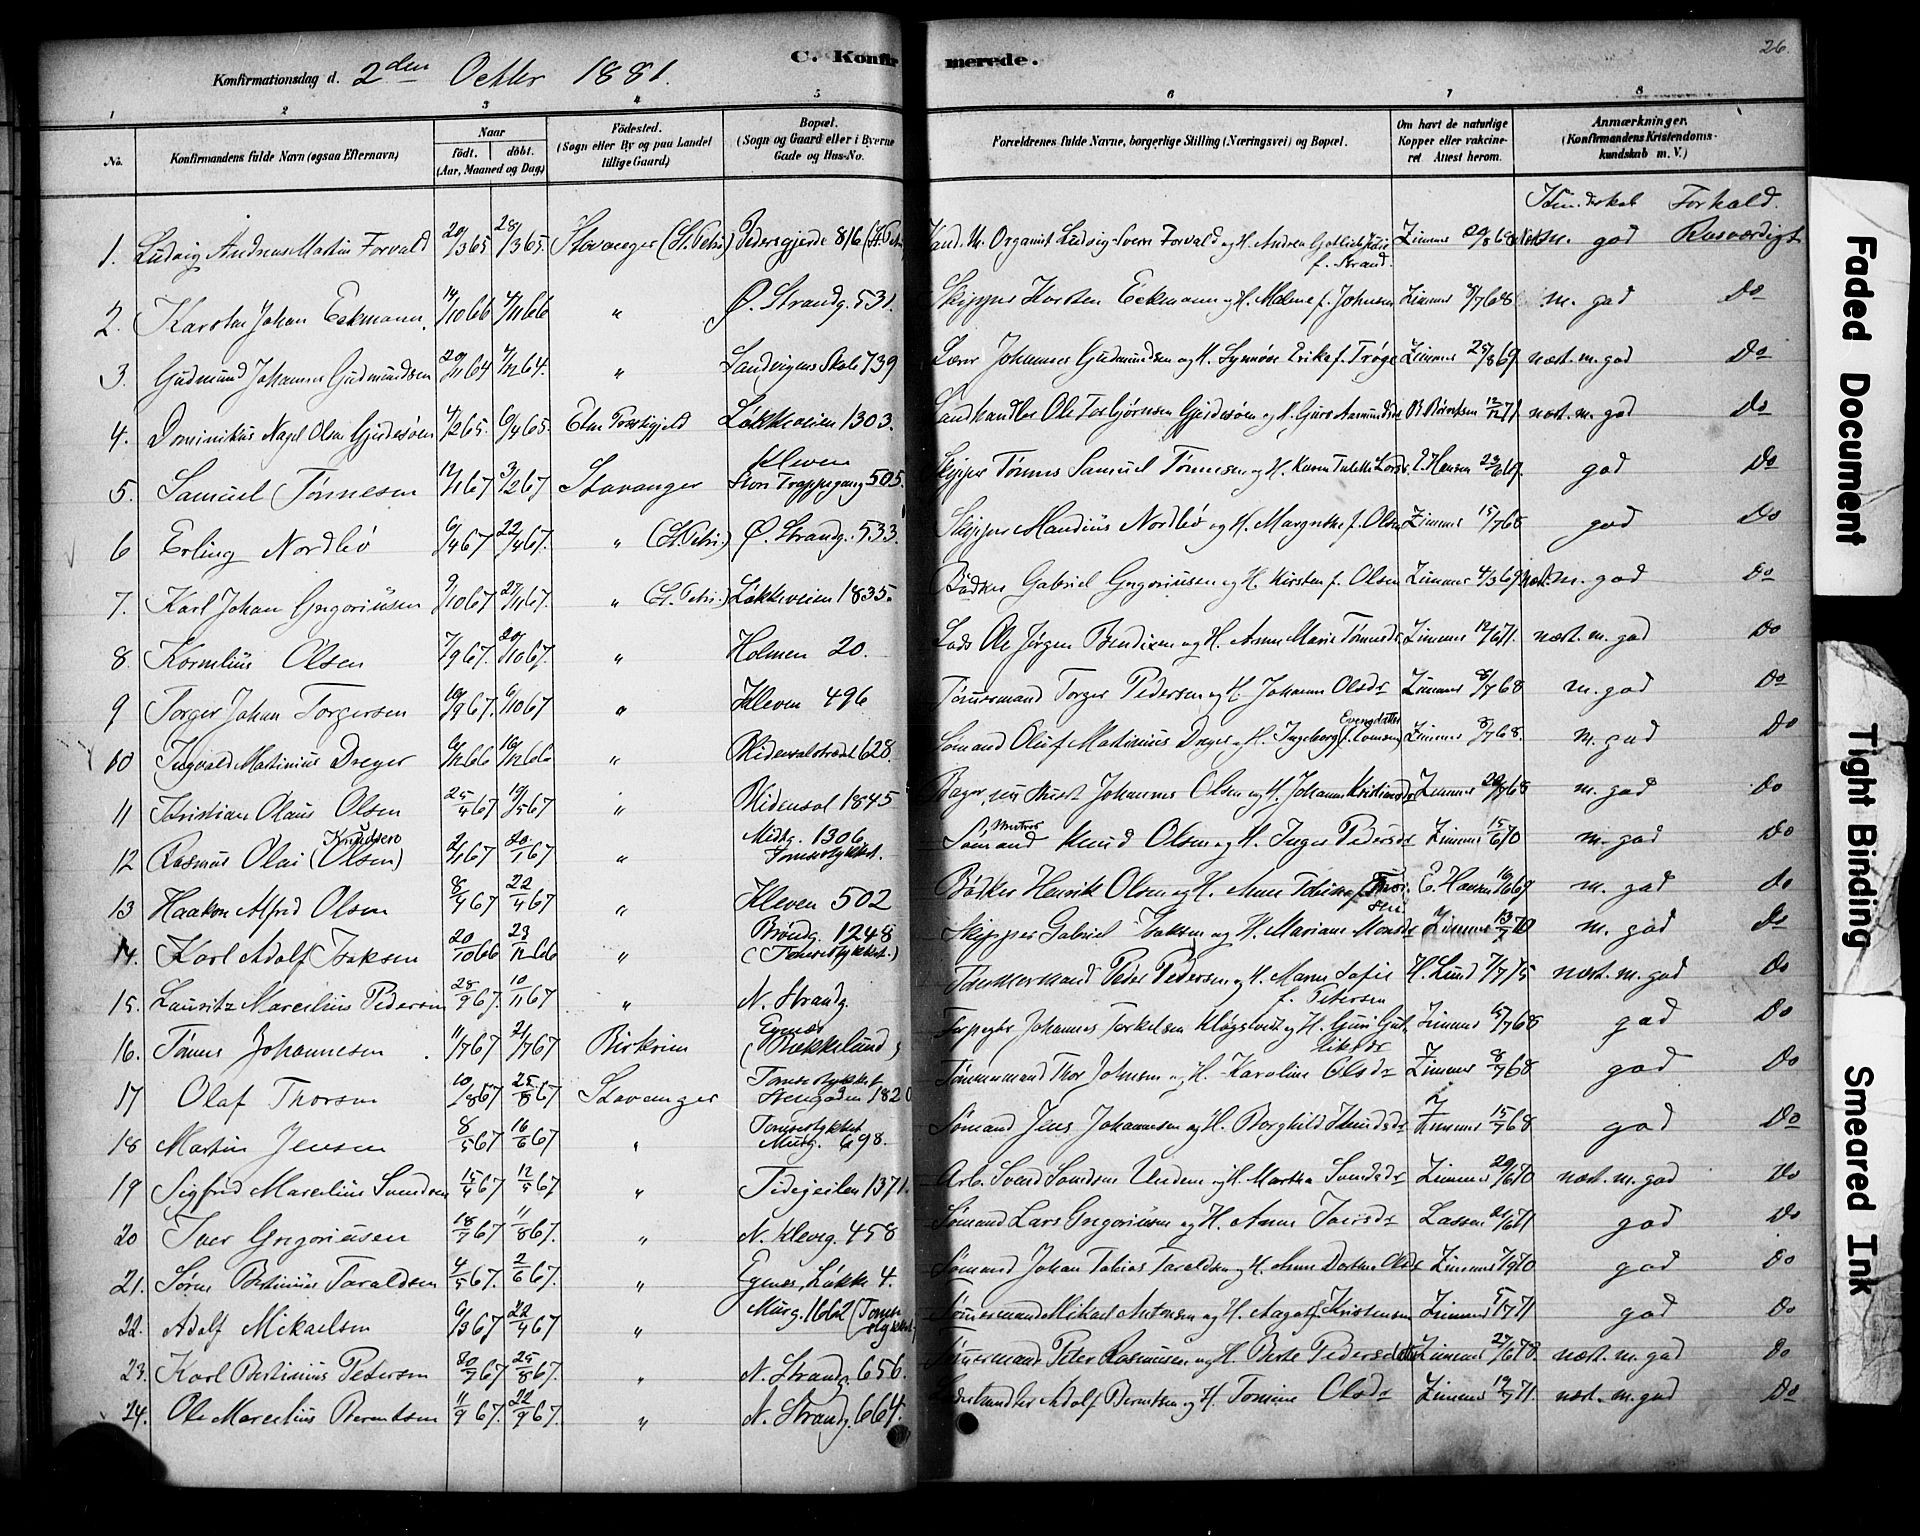 C. Konfirmerede.
26.
Konfirmationsdag d. 2den Octbr 1881.
1 2 3 4 5 6 7 8
No. Konfirmandens fulde Navn (ogsaa Efternavn) Naar født. døbt. (Aar, Maaned og Dag) Fødested. (Sogn eller By og paa Landet tillige Gaard) Bopæl. (Sogn og Gaard eller i Byerne Gade og Hus-No. Forældrenes fulde Navne, borgerlige Stilling (Næringsvei) og Bopæl. Om havt de naturlige Kopper eller vakcineret Attest herom. Anmærkninger. (Konfirmandens Kristendomskundskab m. V.)
Kundskab Forhold.
1. Ludvig Andreas Martin Forvald 20/3 65 28/3 65. Stavanger (St. Petri) Pedersgjerde 816 (St. Petri) Organist Ludvig Forvald og H. Andrea f. Strand. Zimmer m. god Rosværdigt
2. Karsten Johan Eckmann. 14/10 66 4/11 66 " Ø. Strandg. 531. Skipper Karsten Eckmann og H. Malene f. Johnsen Zimmer 8/7 68 m. god Do
3. Gudmund Johannes Gudmundsen 20/11 64 4/12 64. " Sandvigens Skole 739 Lærer Johannes Gudmundsen og H. Synnøve Zimmer 25/8 69. næst. m. god Do
4. Dominikus Nagel Olsen Gjedesøen 4/2 65. 6/4 65. Etne Løkkeveien 1303. Landhandler Ole Torbjørnsen Gjedesøen og H. Guro 12/12 71 næst. m. god Do
5. Samuel Tønnesen 12/1 67 3/2 67 Stavanger Kleven Trappegang 505. Skipper Tønnes Samuel Tønnesen og H. Karen E. Hansen 23/6 69. god Do
6 Erling Nordbø 6/4 67 22/4 67. " (St. Petri.) Ø. Strandg. 533. Skipper Mandius Nordbø og H. Margrethe f. Olsen Zimmer 15/7 68 god Do
7. Karl Johan Gregoriussen 9/10 67 27/11 67. " (St. Petri.) Løkkeveien 1835. Bødker Gabriel Gregoriussen og H. Kirsten f. Olsen Zimmer 4/3 69 næst. m. god Do
8. Kornelius Olsen 7/9 67. 20/10 67. " Holmen 20. Lods Ole Jørgen Bendixen og H. Anne Marie Tønnesdr Zimmer 12/6 71. næst. m. god Do
9 Torger Johan Torgersen 10/9 67. 6/10 67 " Kleven 496 Tømmermand Torger Pedersen og H. Johanne Olsdr Zimmer 8/7 68 m. god Do
10 Ingvald Martinius Dreyer 6/12 66 16/12 66 " 628. Sømand Oluf Martinius Dreyer og H. Ingeborg Evensdatter Zimmer 8/7 68. m. god Do
11 Kristian Olaus Olsen 25/4 67 19/5 67. " 1845 Bager, Johannes Olsen og H. Johanne Kristiansdr Zimmer m. god Do
12 Rasmus Olai (Olsen) Knudsen 2/1 67 20/1 67 " 1306 Tomsestykket. Sømand Knud Olsen og H. Inger Pedersdr Zimmer 15/6 70 m. god Do
13 Haakon Alfred Olsen 8/4 67 22/4 67 " Kleven 502 Bødker Henrik Olsen og H. Anne E. Hansen m. god Do
14. Karl Adolf Isaksen 20/10 66 23/12 66 " Brøndg. 1248 (Tomsestykket.) Skipper Gabriel Isaksen og H. Mariane Monsdr Zimmer 13/7 70 m. god Do
15. Lauritz Marcelius Pedersen 28/9 67. 10/11 67 " N. Strandg. Tømmermand Peder Pedersen og H. Maren Sofie f. Petersen H. Lund 7/7 75 næst. m. god Do
16. Tønnes Johannesen 11/7 67 21/7 67 Birkrim Egenæs (Bækkelund) Johannes Torkelsen og H. Guri Zimmer god Do
17 Olaf Thorsen 10/8 67 25/8 67 Stavanger Tomsestykket Stengaden 1820 Tømmermand Thor Johnsen og H. Karoline Olsdr Zimmer 8/7 68 god Do
18 Martin Jensen 8/5 67 16/6 67 " Tomsestykket Murg. 698. Sømand Jens Johannesen og H. Borghild Knudsdr Zimmer 15/7 68 god Do
19 Sigfred Marcelius Svendsen 15/4 67 12/5 67 " Tidegeilen 1371. Arb. Svend og H. Martha Svendsdr Zimmer 29/6 70 næst. m. god Do
20 Iver Gregoriussen 18/7 67 11/8 67. " N. Kleveg. 458 Sømand Lars Gregoriussen og H. Anne Iversdr Lassen god Do
21. Søren Bertinius Taraldsen 4/5 67. 2/6 67. " Egenæs, Løkke 4. Sømand Johan Tobias Taraldsen og H. Anne Olsdr Zimmer 7/9 70 god Do
22. Adolf Mikaelsen 6/3 67 22/4 67 " Murg. 1662 (Tomsestykket) Tømmermand Mikael Antonsen og H. Kristensen Zimmer god Do
23. Karl Bertinius Petersen 30/7 67 25/8 67. " N. Strandg. 656. Tømmermand Peter Rasmussen og H. Berte Pedersdatter Zimmer 27/6 70. næst. m. god Do
24. Ole Marcelius Berentsen 11/9 67. 22/9 67. " N. Strandg. 664. Adolf Berentsen og H. Tomine Olsdr Zimmer 19/7 71. næst. m. god Do
Faded Document
Tight Binding
Smeared Ink